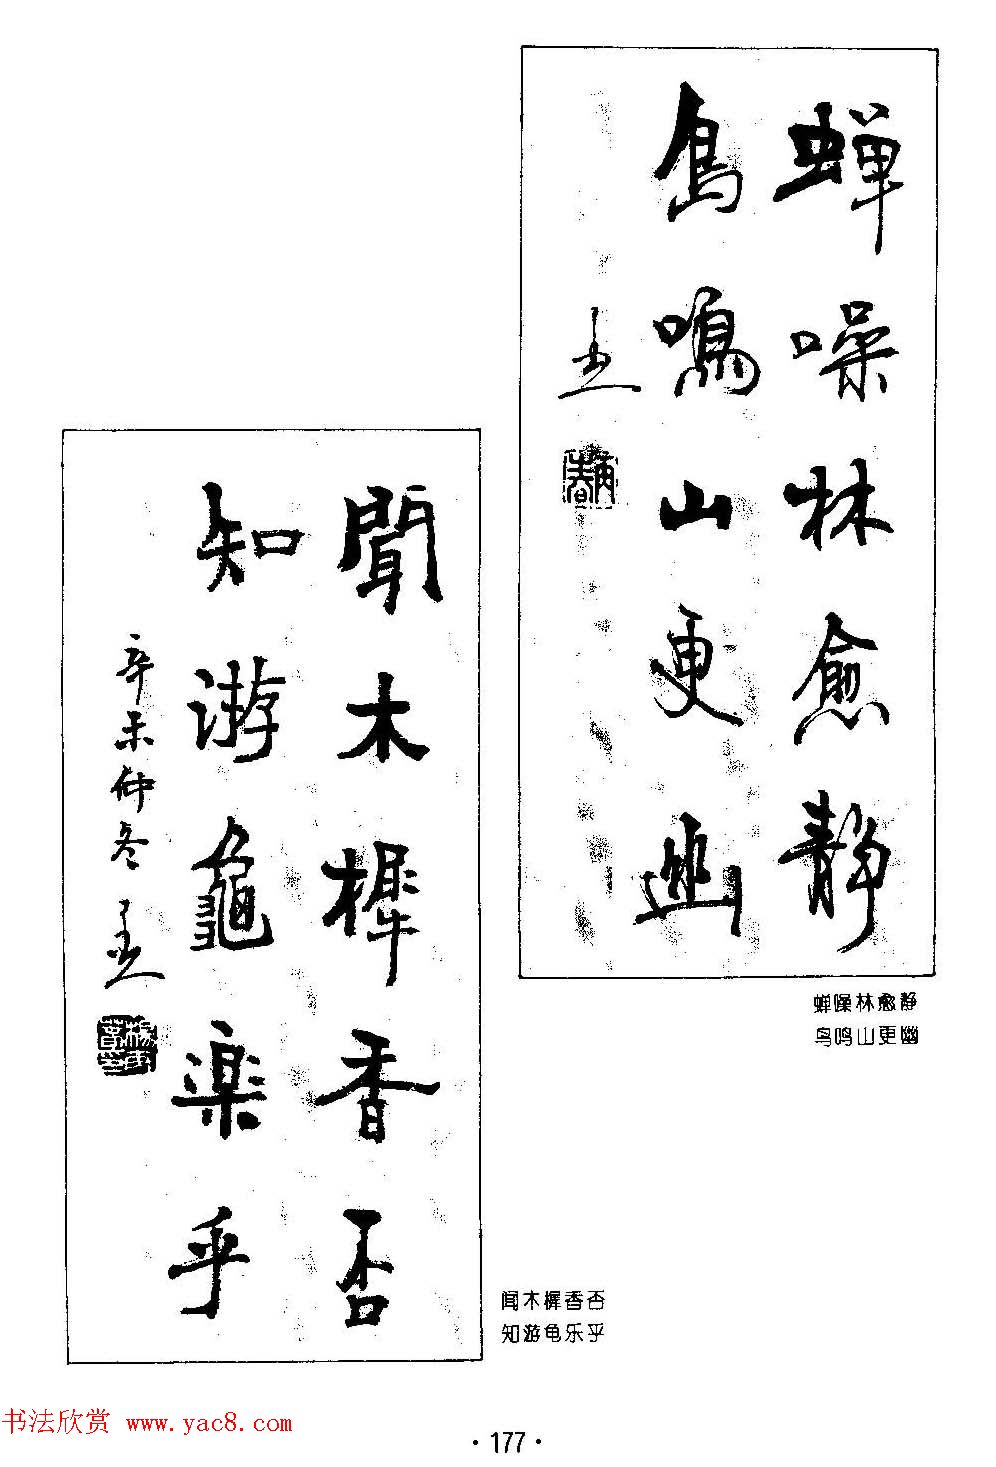 蝉噪林愈静
鳥鳴山更幽
蝉噪林愈静
鸟鸣山更幽
聞木樨香否
知游龜樂乎
辛未仲冬
闻木樨香否
知游龟乐乎
书法欣赏 www.yac8.com
·177·